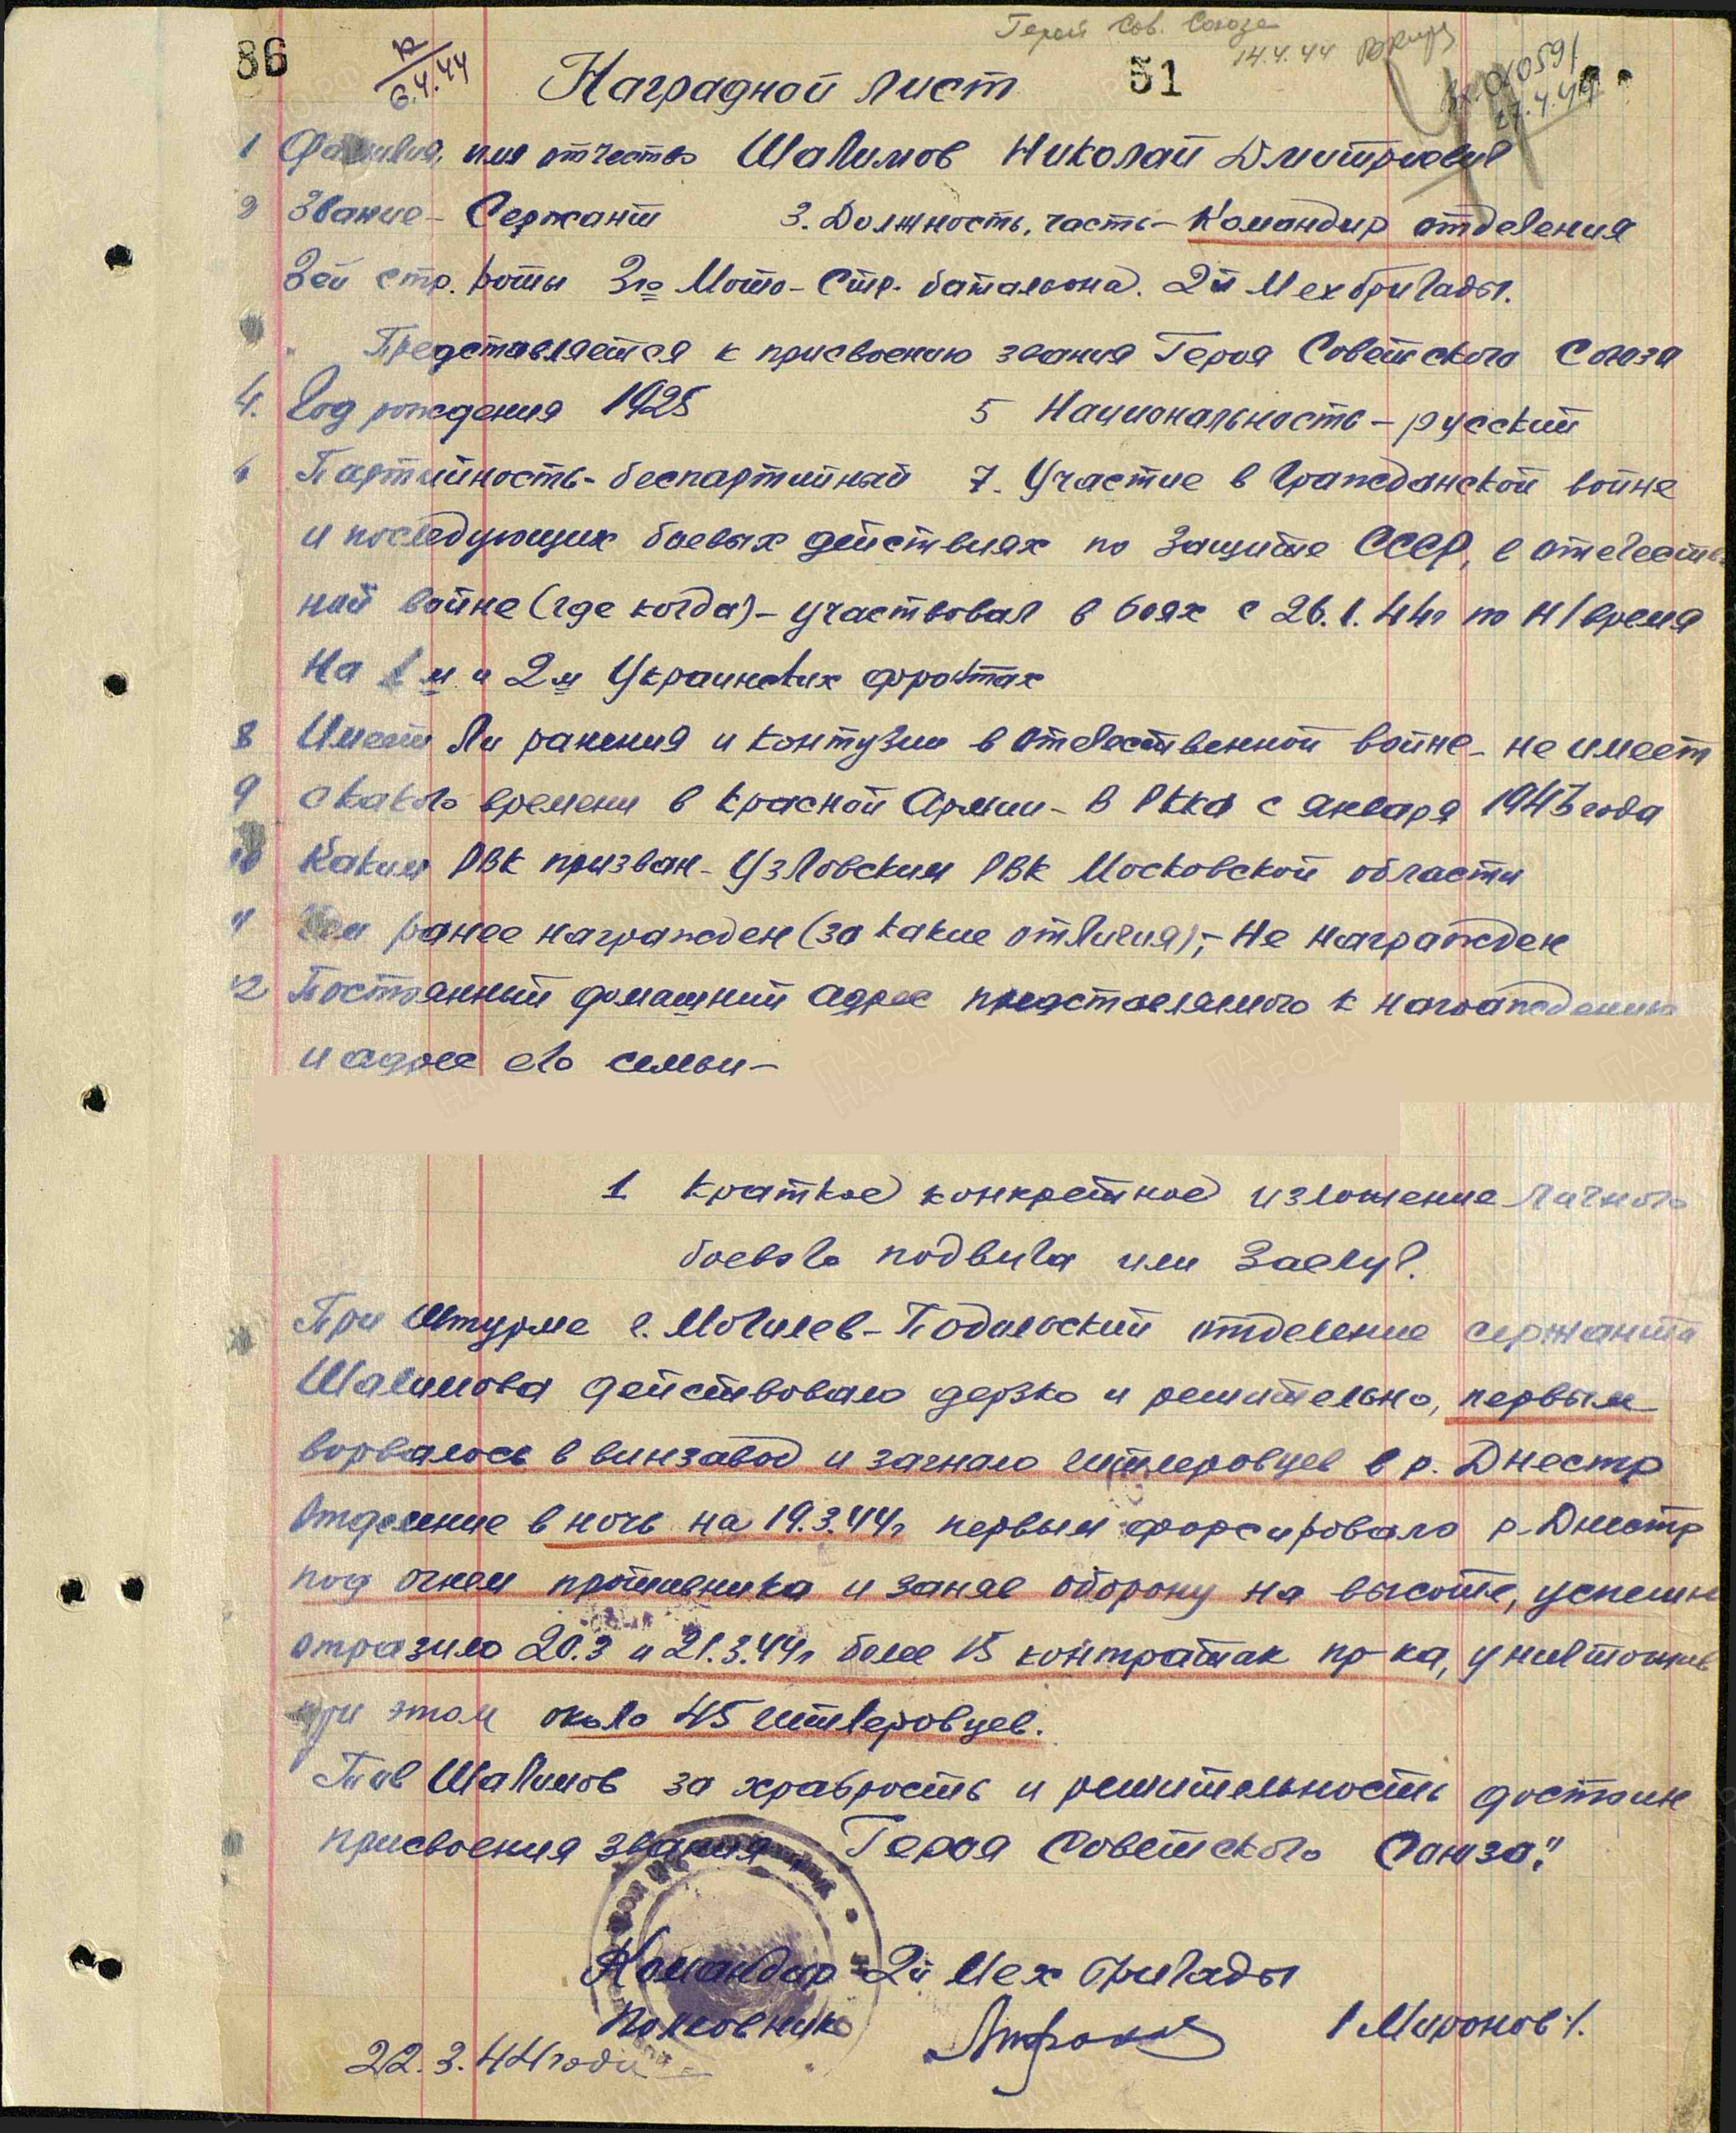 Герой Сов. Союза
86
6.4.44
14.4.44
Наградной лист
51
27.4.44
1 Фамилия, имя отчество Шалимов Николай Дмитриевич
2 Звание - Сержант 3. Должность, часть - Командир отделения
3ей стр. роты 3го Мото-Стр. батальона. 2й Мехбригады.
Представляется к присвоению звания Героя Советского Союза
4. Год рождения 1925 5 Национальность - русский
6 Партийность - беспартийный 7. Участие в гражданской войне
и последующих боевых действиях по защите СССР, в отечествен
ной войне (где когда) - участвовал в боях с 26.1.44г по н/время
На 1м и 2м Украинских фронтах
8 Имеет ли ранения и контузии в отечественной войне - не имеет
9 С какого времени в Красной Армии - В РККА с января 1943 года
10 Каким РВК призван - Узловским РВК Московской области
11 Чем ранее награжден (за какие отличия); - Не награжден
12 Постоянный домашний адрес представляемого к награждению
и адрес его семьи -
1 Краткое конкретное изложение личного
боевого подвига или заслуг.
При штурме г. Могилев-Подольский отделение сержанта
Шалимова действовало дерзко и решительно, первым
ворвалось в винзавод и загнало гитлеровцев в р. Днестр
Отделение в ночь на 19.3.44г первым форсировало р-Днестр
под огнем противника и заняв оборону на высоте, успешно
отразило 20.3 и 21.3.44г более 15 контратак пр-ка, уничтожив
при этом около 45 гитлеровцев.
Тов Шалимов за храбрость и решительность достоин
присвоения звания „Героя Советского Союза".
Командир 2й Мех бригады
Полковник /Миронов/.
22.3.44 года